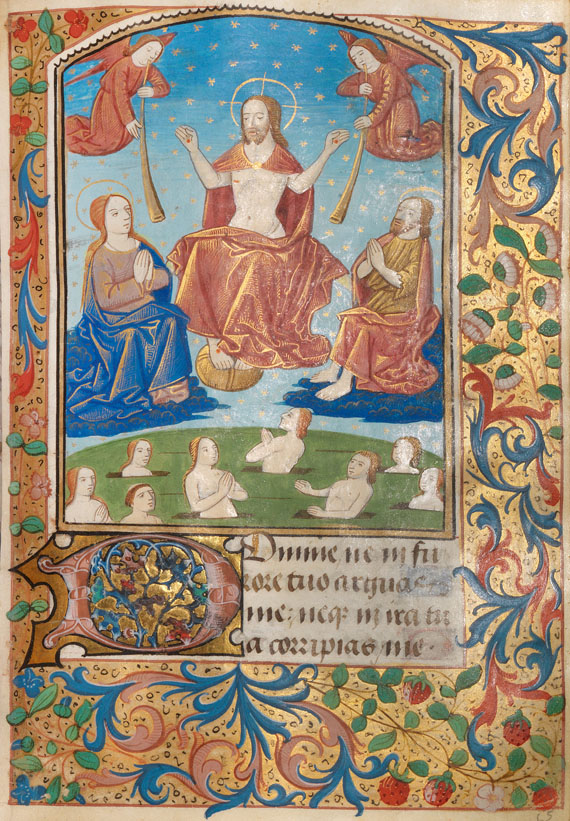 Domine ne in fu
rore tuo arguas
me; neqz in ira tu
a corripias me.